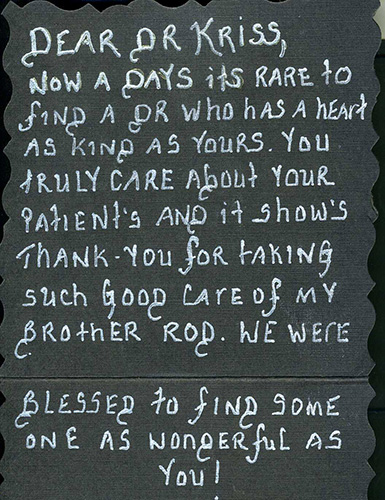 DEAR DR KRISS,
NOW A DAYS its RARE to
fIND A DR WHO HAS A HEART
AS KIND AS YOURS. YOU
tRULY CARE About YOUR
PAtIENt'S AND it SHOW'S
THANK-YOU fOR tAKING
SUCH GOOD CARE Of MY
BROtHER ROD. WE WERE
BLESSED tO fIND SOME
ONE AS WONDERfUL AS
YOU!